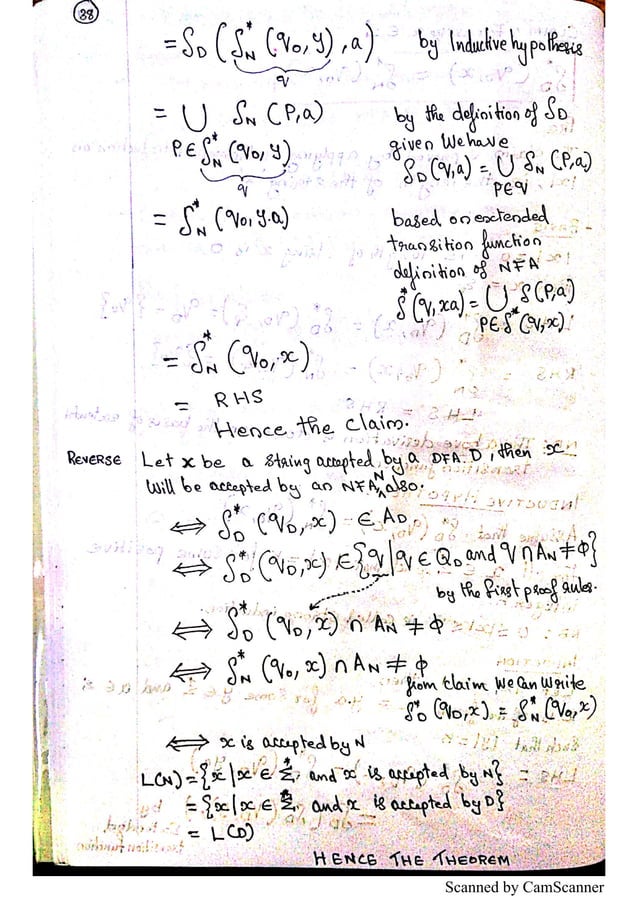 38
= δD (δN* (q0, y), a) by Inductive hypothesis
q
= ∪ δN (P, a) by the definition of δD
P∈δN* (q0, y) given we have
q δD (q, a) = ∪ δN (P, a)
P∈q
= δN* (q0, y.a) based on extended
transition function
definition of NFA
δ* (q, xa) = ∪ δ(P, a)
P∈δ* (q, x)
= δN* (q0, x)
= RHS
Hence the claim.
REVERSE Let x be a string accepted by a DFA D, then x
will be accepted by an NFA N also.
⟺ δD* (qD, x) ∈ AD
⟺ δD* (qD, x) ∈ {q | q ∈ QD and q ∩ AN ≠ ϕ}
by the first proof rules.
⟺ δD* (qD, x) ∩ AN ≠ ϕ
⟺ δN* (q0, x) ∩ AN ≠ ϕ
from claim we can write
δD* (qD, x) = δN* (q0, x)
⟺ x is accepted by N
L(N) = {x | x ∈ Σ* and x is accepted by N}
= {x | x ∈ Σ* and x is accepted by D}
= L(D)
HENCE THE THEOREM
Scanned by CamScanner